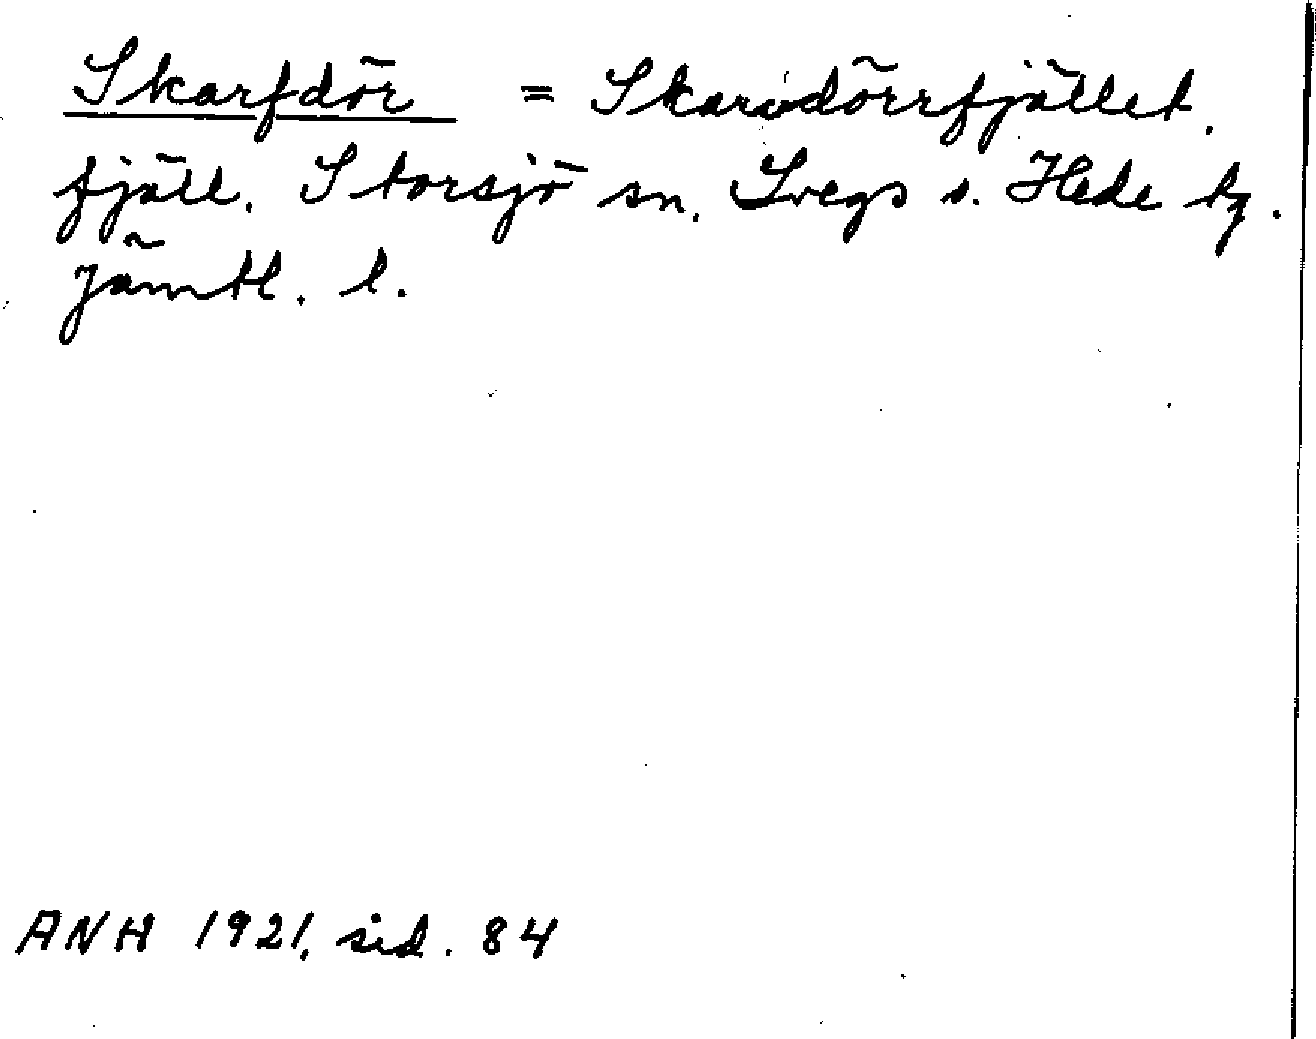 Skarfdör = Skarvdörrfjället.
fjäll. Storsjö sn. Svegs o. Hede tg.
Jämtl. l.
ANH 1921, sid. 84